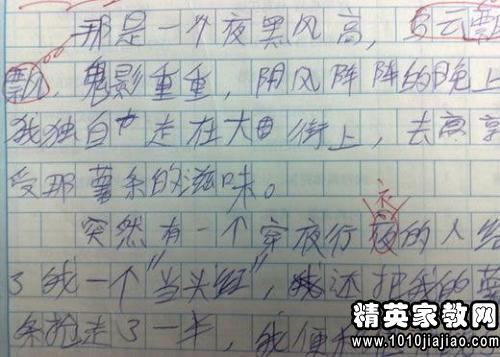 那是一个夜黑风高，乌云飘
飘，鬼影重重，阴风阵阵的晚上
我独自 走在大 街上，去享
受那薯条的滋味。
衣
突然有一个穿夜行夜的人给
了我一个"当头红"，还把我的薯
条抢走了一半，我便
精英家教网
www.1010jiajiao.com